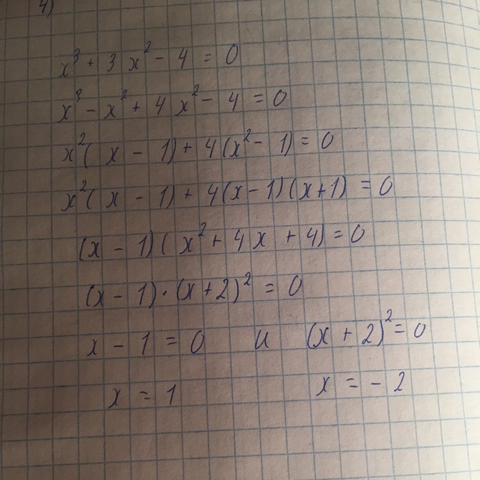 4)
x³ + 3x² - 4 = 0
x³ - x² + 4x² - 4 = 0
x²(x - 1) + 4(x² - 1) = 0
x²(x - 1) + 4(x - 1)(x + 1) = 0
(x - 1)(x² + 4x + 4) = 0
(x - 1)·(x + 2)² = 0
x - 1 = 0 и (x + 2)² = 0
x = 1 x = - 2